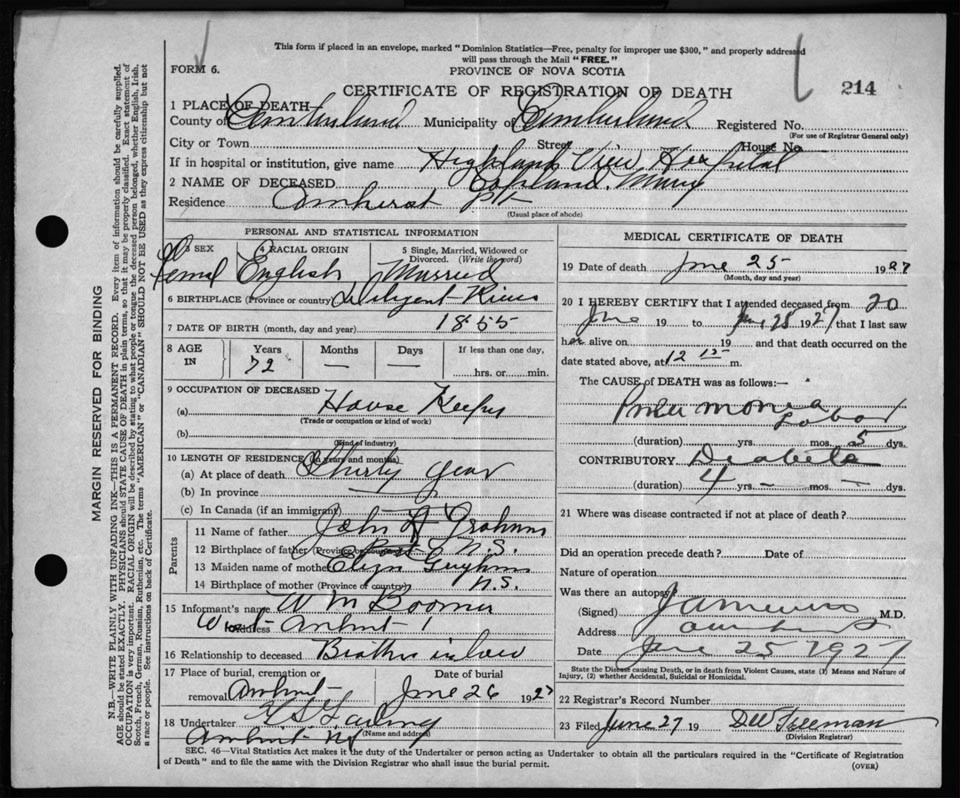 This form if placed in an envelope, marked "Dominion Statistics—Free, penalty for improper use $300," and properly addressed
will pass through the Mail "FREE."
FORM 6.
PROVINCE OF NOVA SCOTIA
CERTIFICATE OF REGISTRATION OF DEATH
214
1 PLACE OF DEATH
County of Cumberland Municipality of Cumberland Registered No.
(For use of Registrar General only)
City or Town Street House No.
If in hospital or institution, give name Highland View Hospital
2 NAME OF DECEASED Copeland. Mary
Residence Amherst Pt
(Usual place of abode)
PERSONAL AND STATISTICAL INFORMATION
3 SEX 4 RACIAL ORIGIN 5 Single, Married, Widowed or Divorced. (Write the word)
Femal English Married
6 BIRTHPLACE (Province or country) Diligent River
7 DATE OF BIRTH (month, day and year) 1855
8 AGE IN Years Months Days If less than one day,
72 — — hrs. or min.
9 OCCUPATION OF DECEASED
(a) House Keeper
(Trade or occupation or kind of work)
(b)
(Kind of industry)
10 LENGTH OF RESIDENCE (in years and months)
(a) At place of death Thirty year
(b) In province
(c) In Canada (if an immigrant)
Parents
11 Name of father John Graham
12 Birthplace of father (Province or country) N.S.
13 Maiden name of mother
14 Birthplace of mother (Province of country) N.S.
15 Informant's name W M Boomer
Address West Amherst
16 Relationship to deceased Brother in law
17 Place of burial, cremation or removal Amherst Date of burial June 26 1927
18 Undertaker
(Name and address)
Amherst NS
MEDICAL CERTIFICATE OF DEATH
19 Date of death June 25 1927
(Month, day and year)
20 I HEREBY CERTIFY that I attended deceased from 20
June 19 to June 25 1927 that I last saw
her alive on 19 and that death occurred on the
date stated above, at 12 15 m.
The CAUSE of DEATH was as follows:—
Pneumonia
Lobar
(duration) yrs. mos. 5 dys.
CONTRIBUTORY Diabetes
(duration) 4 yrs. — mos. — dys.
21 Where was disease contracted if not at place of death?
Did an operation precede death? Date of
Nature of operation
Was there an autopsy?
(Signed) M.D.
Address Amherst
Date June 25 1927
State the Disease causing Death, or in death from Violent Causes, state (1) Means and Nature of
Injury, (2) whether Accidental, Suicidal or Homicidal.
22 Registrar's Record Number
23 Filed June 27 19
(Division Registrar)
SEC. 46—Vital Statistics Act makes it the duty of the Undertaker or person acting as Undertaker to obtain all the particulars required in the "Certificate of Registration
of Death" and to file the same with the Division Registrar who shall issue the burial permit.
(OVER)
MARGIN RESERVED FOR BINDING
N.B.—WRITE PLAINLY WITH UNFADING INK—THIS IS A PERMANENT RECORD. Every item of information should be carefully supplied.
AGE should be stated EXACTLY. PHYSICIANS should STATE CAUSE OF DEATH in plain terms, so that it may be properly classified. Exact statement of
OCCUPATION is very important. RACIAL ORIGIN will be described by stating to what people or tongue the deceased person belonged, whether English, Irish,
Scotch, French, German, Russian, Ruthenian, etc. The terms "AMERICAN" or "CANADIAN" SHOULD NOT BE USED as they express citizenship but not
a race or people. See instructions on back of Certificate.